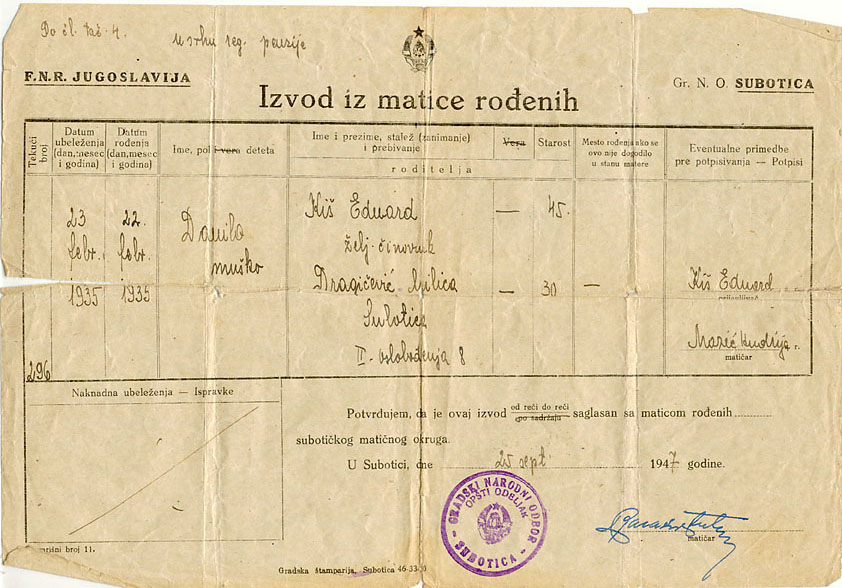 Do čl. tač. 4.
u svrhu reg. penzije
F.N.R. JUGOSLAVIJA
Gr. N. O. SUBOTICA
Izvod iz matice rođenih
Tekući broj
Datum ubeleženja (dan, mesec i godina)
Datum rođenja (dan, mesec i godina)
Ime, pol i vera deteta
Ime i prezime, stalež (zanimanje) i prebivanje
Vera
Starost
roditelja
Mesto rođenja ako se ovo nije dogodilo u stanu matere
Eventualne primedbe pre potpisivanja — Potpisi
23 febr. 1935
22. febr. 1935
Danilo
muško
Kiš Eduard — 45.
želj. činovnik
Dragičević Milica — 30 —
Subotica
II. oslobođenja 8
Kiš Eduard
prijavljivač
r.
matičar
296
Naknadna ubeleženja — Ispravke
Potvrđujem, da je ovaj izvod od reči do reči po sadržaju saglasan sa maticom rođenih
subotičkog matičnog okruga.
U Subotici, dne 25 sept. 1947 godine.
GRADSKI NARODNI ODBOR
OPŠTI ODELJAK
SUBOTICA
matičar
broj 11.
Gradska štamparija, Subotica